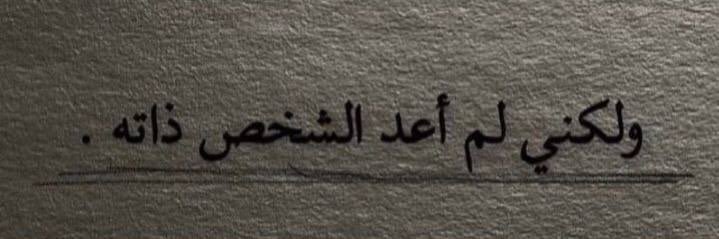 ولكني لم أعد الشخص ذاته .